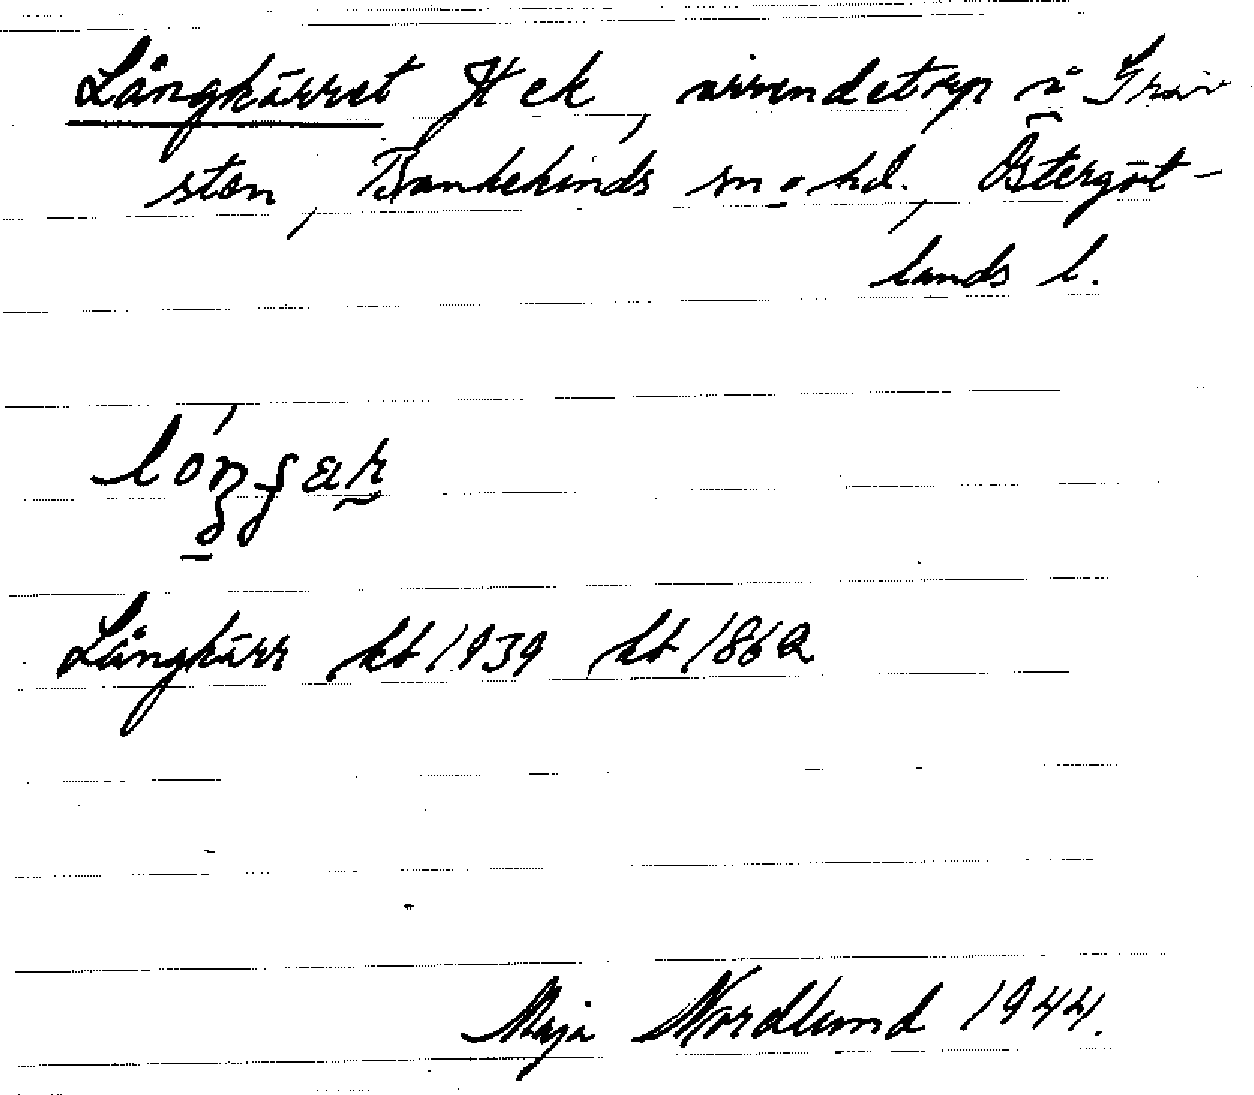 Långkärret H ek, arrendetorp å Grav
sten, Bankekinds sn o hd., Östergöt-
lands l.
Långkärr kb 1939 kb 1862
Maja Nordlund 1944.